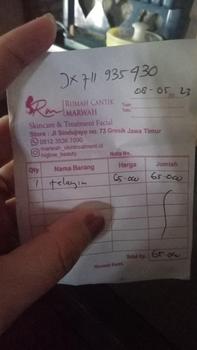 JX 711 935 430
08-05 23
RUMAH CANTIK
MARWAH
Skincare & Treatment Facial
Store : Jl Sindujoyo no. 73 Gresik Jawa Timur
marwah_skintreatment.id
Nota No.
Qty Nama Barang Harga Jumlah
1 65.000 65.000
Total Rp. 65.000
Hormat Kami,